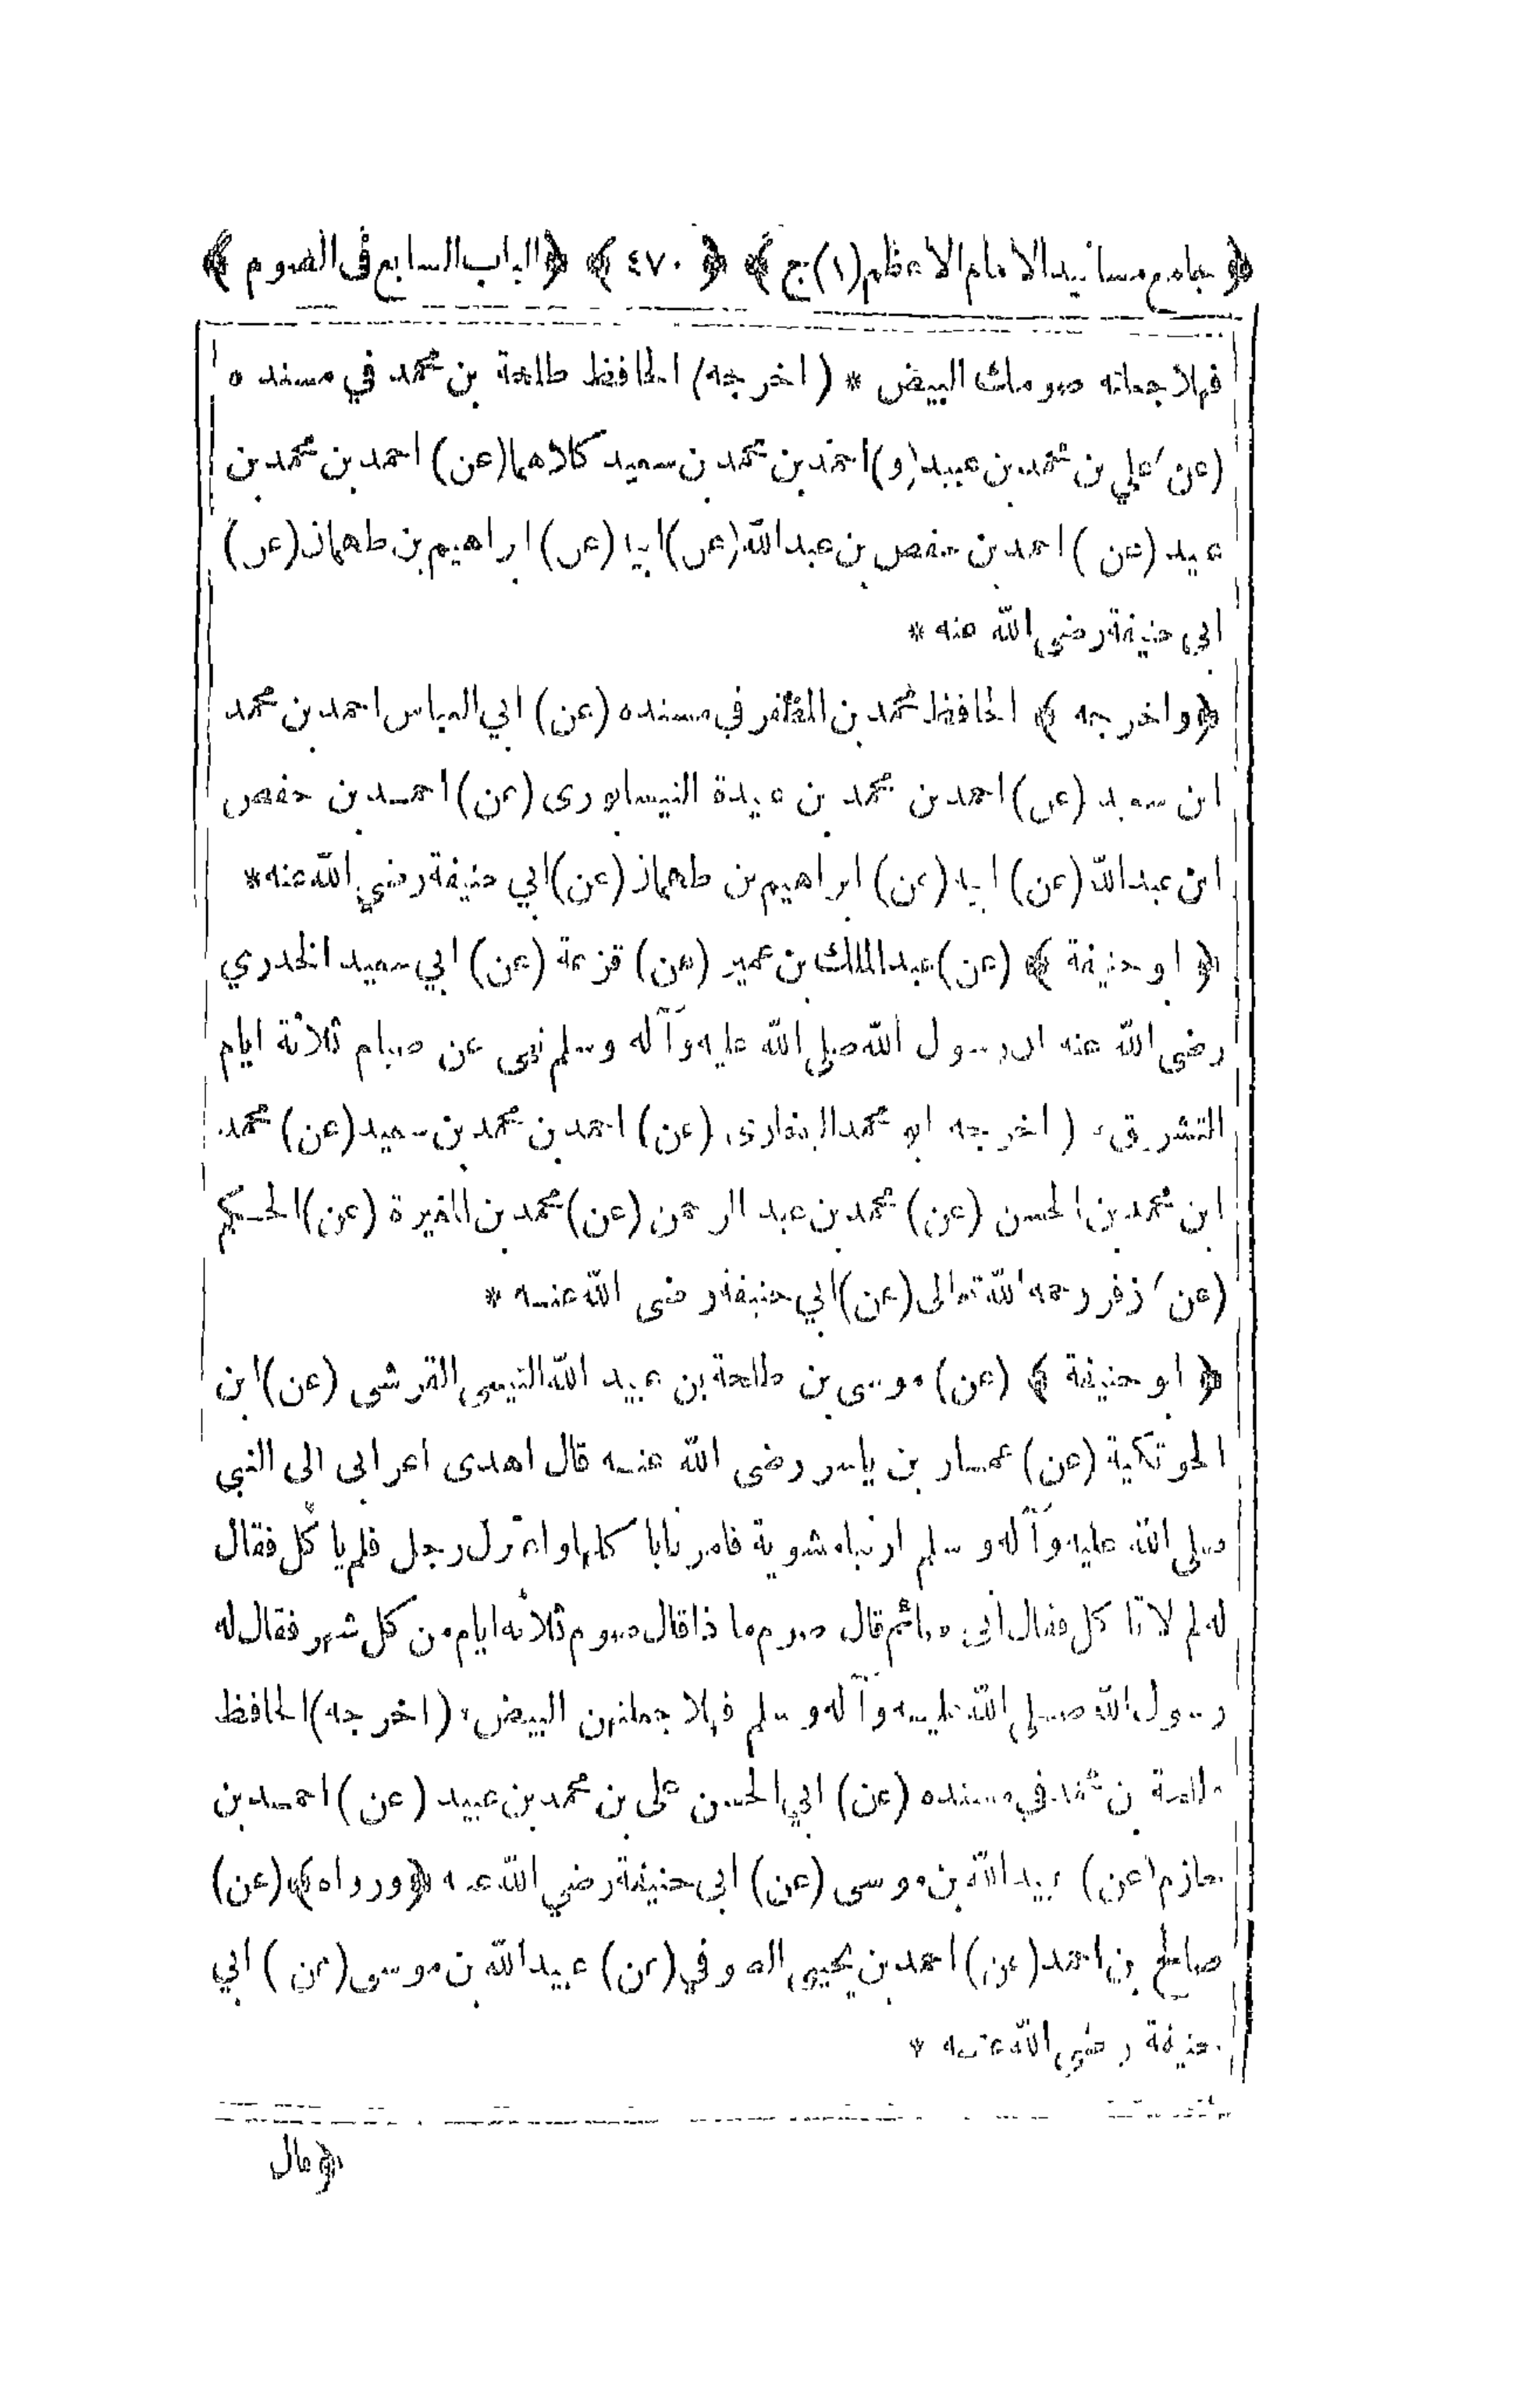 ﴿ جامع مسانيد الامام الاعظم (١) ج ﴾ ﴿ ٤٧٠ ﴾ ﴿ الباب السابع فى الصوم ﴾
فهلا جعلته صومك البيض * ( اخرجه ) الحافظ طلحة بن محمد في مسنده
(عن) علي بن محمد بن عبيد (و) احمد بن محمد بن سعيد كلاهما (عن) احمد بن محمد بن
عبيد (عن) احمد بن حفص بن عبدالله (عن) ابيه (عن) ابراهيم بن طهمان (عن)
ابى حنيفة رضى الله عنه *
﴿ واخرجه ﴾ الحافظ محمد بن المظفر في مسنده (عن) ابي العباس احمد بن محمد
ابن سعيد (عن) احمد بن محمد بن عبيدة النيسابورى (عن) احمد بن حفص
ابن عبدالله (عن) ابيه (عن) ابراهيم بن طهمان (عن) ابي حنيفة رضي الله عنه *
﴿ ابو حنيفة ﴾ (عن) عبدالملك بن عمير (عن) قزعة (عن) ابي سعيد الخدري
رضى الله عنه ان رسول الله صلى الله عليه وآله وسلم نهى عن صيام ثلاثة ايام
التشريق * ( اخرجه ابو محمد البخارى (عن) احمد بن محمد بن سعيد (عن) محمد
ابن محمد بن الحسن (عن) محمد بن عبد الرحمن (عن) محمد بن المغيرة (عن) الحكم
(عن) زفر رحمه الله تعالى (عن) ابي حنيفة رضى الله عنه *
﴿ ابو حنيفة ﴾ (عن) موسى بن طلحة بن عبيد الله التيمى القرشى (عن) ابن
الحوتكية (عن) عمار بن ياسر رضى الله عنه قال اهدى اعرابى الى النبي
صلى الله عليه وآله وسلم ارنبا مشوية فامرنا باكلها واعتزل رجل فلم ياكل فقال
له لم لا تاكل فقال انى صائم قال صوم ما ذا قال صوم ثلاثه ايام من كل شهر فقال له
رسول الله صلى الله عليه وآله وسلم فهلا جعلتهن البيض * (اخرجه) الحافظ
طلحة بن محمد في مسنده (عن) ابي الحسن على بن محمد بن عبيد (عن) احمد بن
حازم (عن) عبيد الله بن موسى (عن) ابى حنيفة رضي الله عنه ﴿ ورواه ﴾ (عن)
صالح بن احمد (عن) احمد بن يحيى الصوفي (عن) عبيدالله بن موسى (عن) ابي
حنيفة رضى الله عنه *